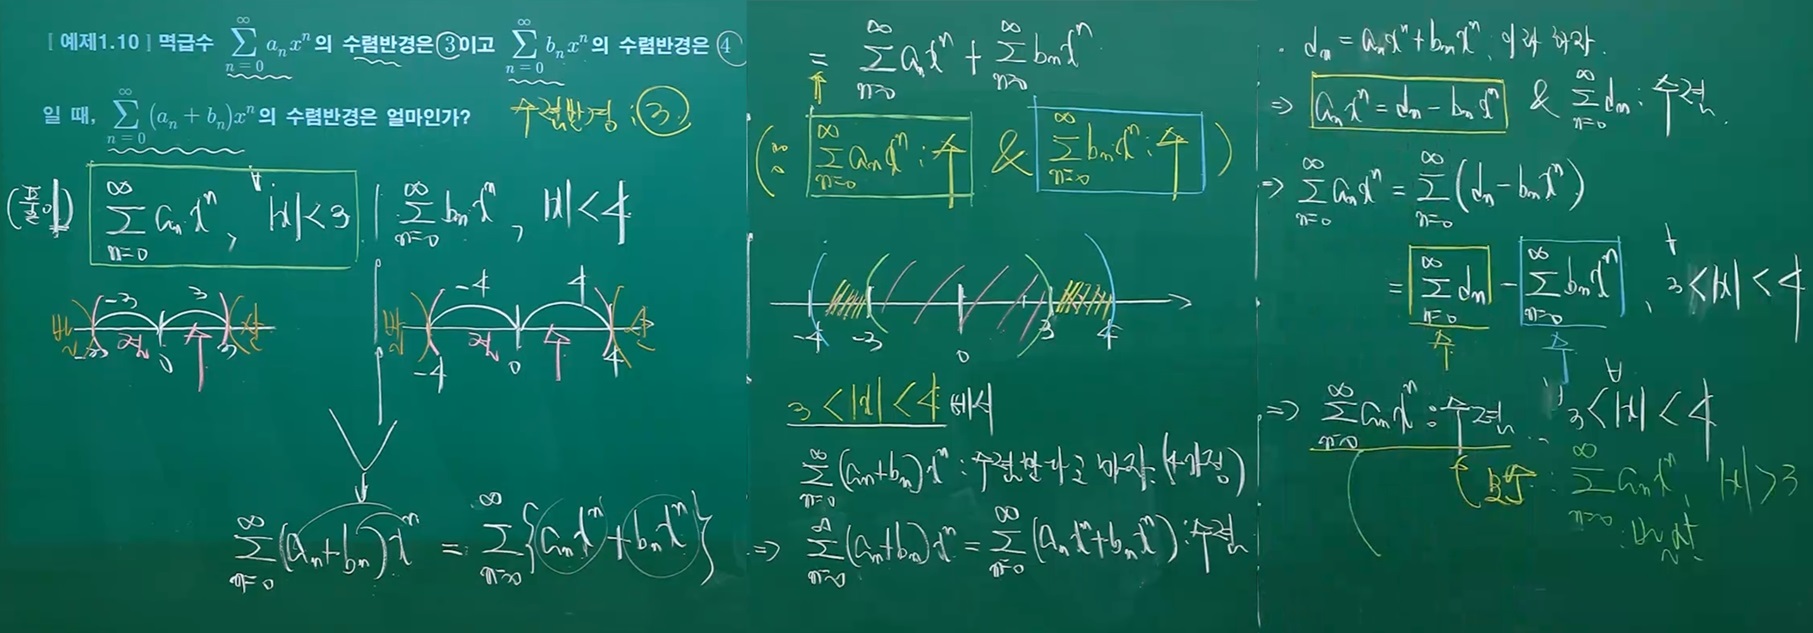 [ 예제1.10 ] 멱급수 $\sum_{n=0}^{\infty} a_n x^n$의 수렴반경은 ③이고 $\sum_{n=0}^{\infty} b_n x^n$의 수렴반경은 ④
일 때, $\sum_{n=0}^{\infty} (a_n + b_n)x^n$의 수렴반경은 얼마인가?
수렴반경 : ③.
(풀이) $\sum_{n=0}^{\infty} a_n x^n$, ∀ |x| < 3
$\sum_{n=0}^{\infty} b_n x^n$, |x| < 4
-3 3
발 -3 절 0 수 3 산
-4 4
발 -4 절 0 수 4 산
$\sum_{n=0}^{\infty} (a_n+b_n)x^n = \sum_{n=0}^{\infty} \{a_n x^n + b_n x^n\}$
$= \sum_{n=0}^{\infty} a_n x^n + \sum_{n=0}^{\infty} b_n x^n$
(∵ $\sum_{n=0}^{\infty} a_n x^n$ : 수 & $\sum_{n=0}^{\infty} b_n x^n$ : 수)
-4 -3 0 3 4
3 < |x| < 4 에서
$\sum_{n=0}^{\infty} (a_n+b_n)x^n$ : 수렴한다고 하자. (가정)
⇒ $\sum_{n=0}^{\infty} (a_n+b_n)x^n = \sum_{n=0}^{\infty} (a_n x^n + b_n x^n)$ : 수렴
. $d_n = a_n x^n + b_n x^n$ 이라 하자.
⇒ $a_n x^n = d_n - b_n x^n$ & $\sum_{n=0}^{\infty} d_n$ : 수렴.
⇒ $\sum_{n=0}^{\infty} a_n x^n = \sum_{n=0}^{\infty} (d_n - b_n x^n)$
$= \sum_{n=0}^{\infty} d_n - \sum_{n=0}^{\infty} b_n x^n$, ∀ 3 < |x| < 4
수 수
⇒ $\sum_{n=0}^{\infty} a_n x^n$ : 수렴, ∀ 3 < |x| < 4
( 모순 : $\sum_{n=0}^{\infty} a_n x^n$, |x| > 3
: 발산